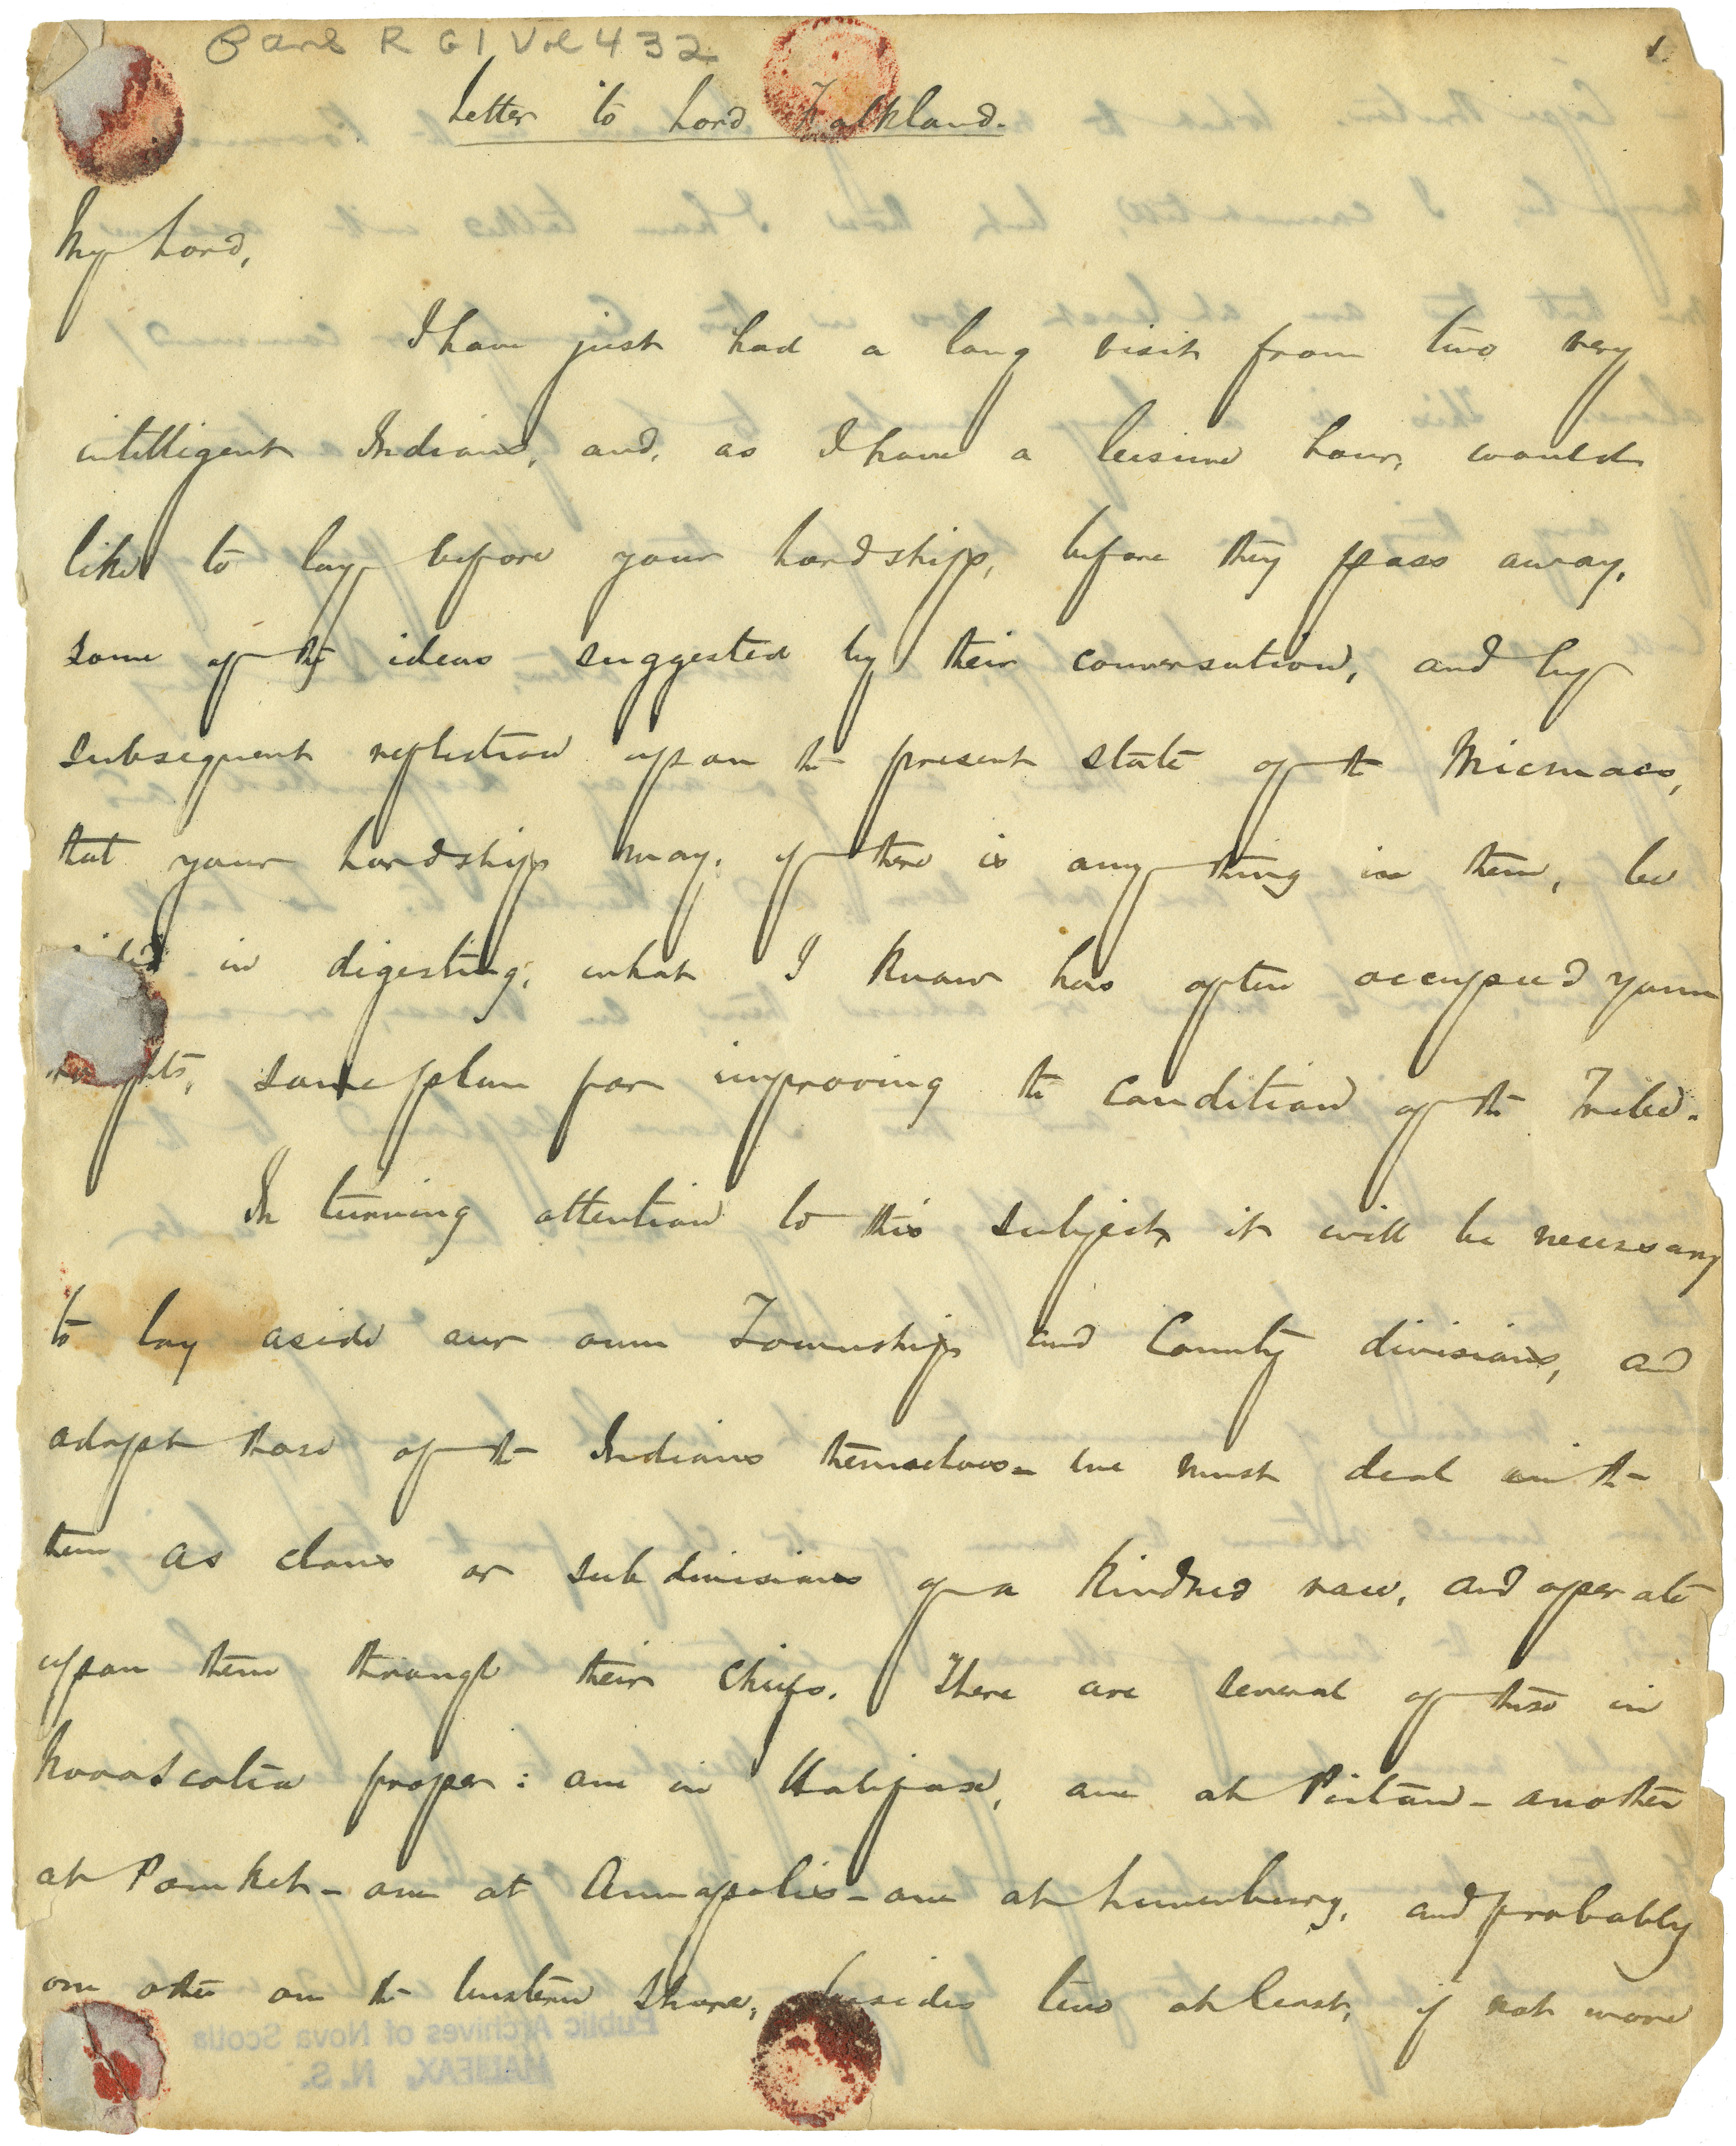 Pans R G 1 Vol 432
1.
Letter to Lord Falkland.
My Lord,
I have just had a long visit from two very
intelligent Indians, and, as I have a leisure hour, would
like to lay before your Lordship, before they pass away,
some of the ideas suggested by their conversation, and by
subsequent reflection upon the present state of the Micmacs,
that your Lordship may, if there is any thing in them, be
in digesting, what I know has often occupied your
some plan for improving the condition of the Tribe.
In turning attention to this subject it will be necessary
to lay aside our own Township and County divisions, and
adopt those of the Indians themselves - we must deal with
them as clans or subdivisions of a kindred race, and operate
upon them through their Chiefs. There are several of these in
Nova Scotia proper: one in Halifax, one at Pictou - another
at Pomket - one at Annapolis - one at Lunenburg, and probably
one other on the Western Shore, besides two at least, if not more
Public Archives of Nova Scotia
HALIFAX, N. S.